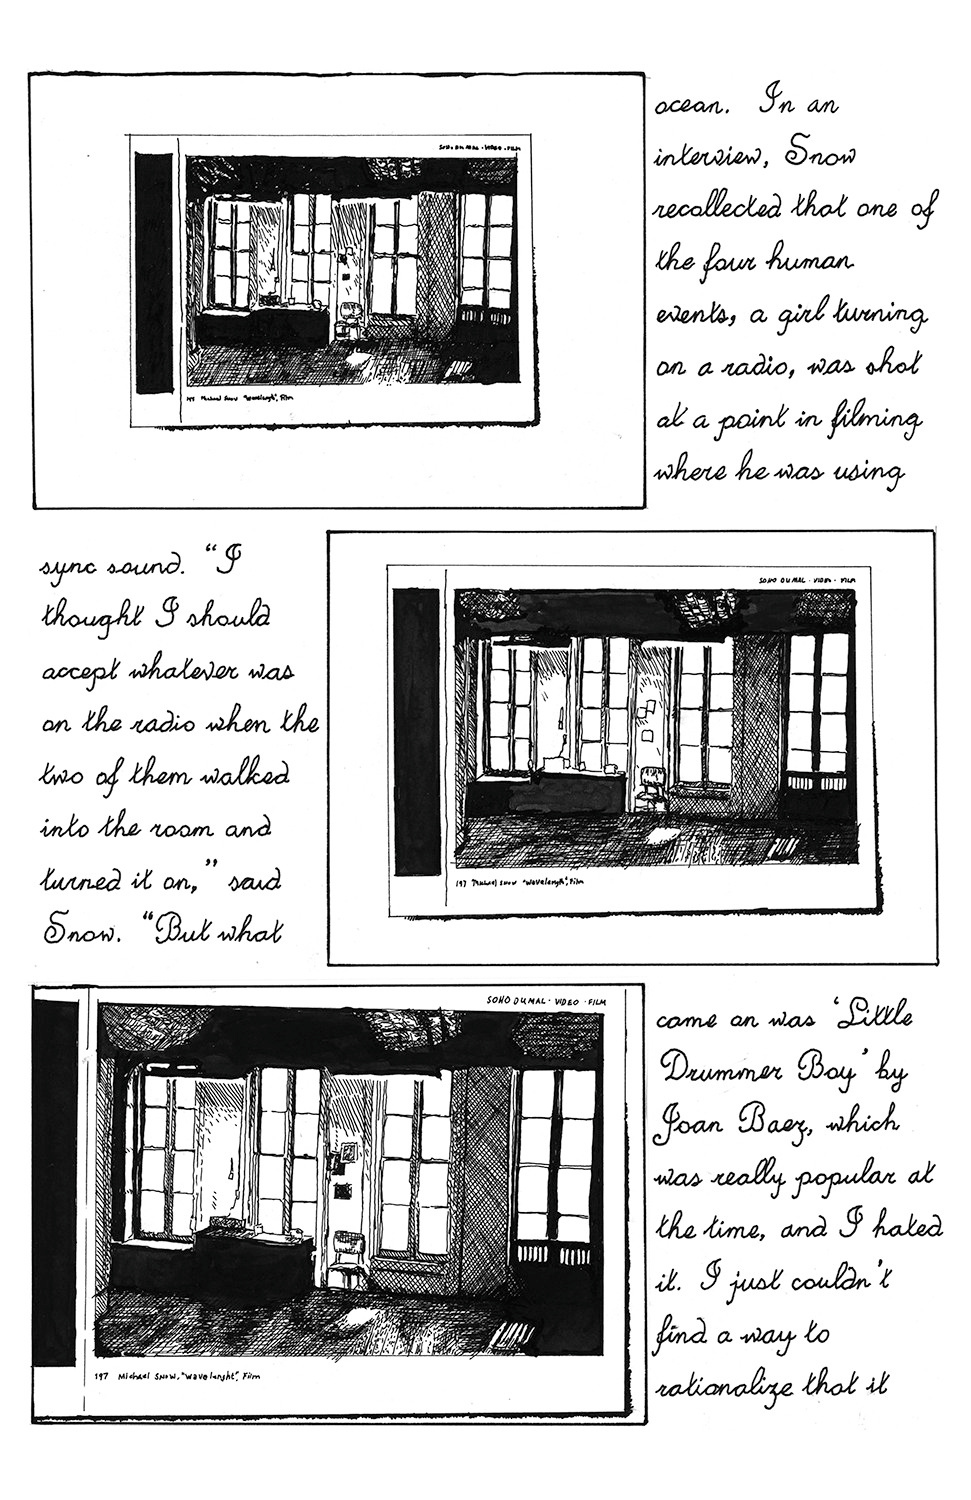 SOHO DUMAL · VIDEO · FILM
197 Michael Snow "Wavelenght", Film
ocean. In an
interview, Snow
recollected that one of
the four human
events, a girl turning
on a radio, was shot
at a point in filming
where he was using
sync sound. "I
thought I should
accept whatever was
on the radio when the
two of them walked
into the room and
turned it on," said
Snow. "But what
SOHO DUMAL · VIDEO · FILM
197 Michael Snow "Wavelenght", Film
SOHO DUMAL · VIDEO · FILM
197 Michael Snow, "Wavelenght", Film
came on was 'Little
Drummer Boy' by
Joan Baez, which
was really popular at
the time, and I hated
it. I just couldn't
find a way to
rationalize that it